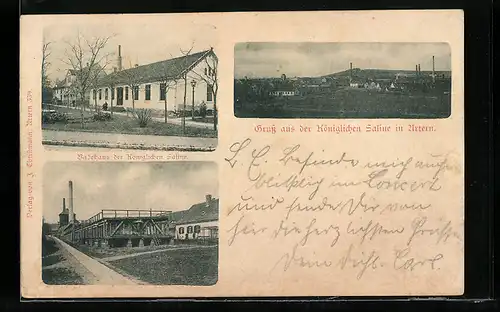 Verlag von J. Artern 379.
Badehaus der Königlichen Saline.
Gruß aus der Königlichen Saline in Artern.
L. E. Befinde mich auf
im Concert
und sende Dir von
hier die herzlichsten Grüße
Dein Carl.